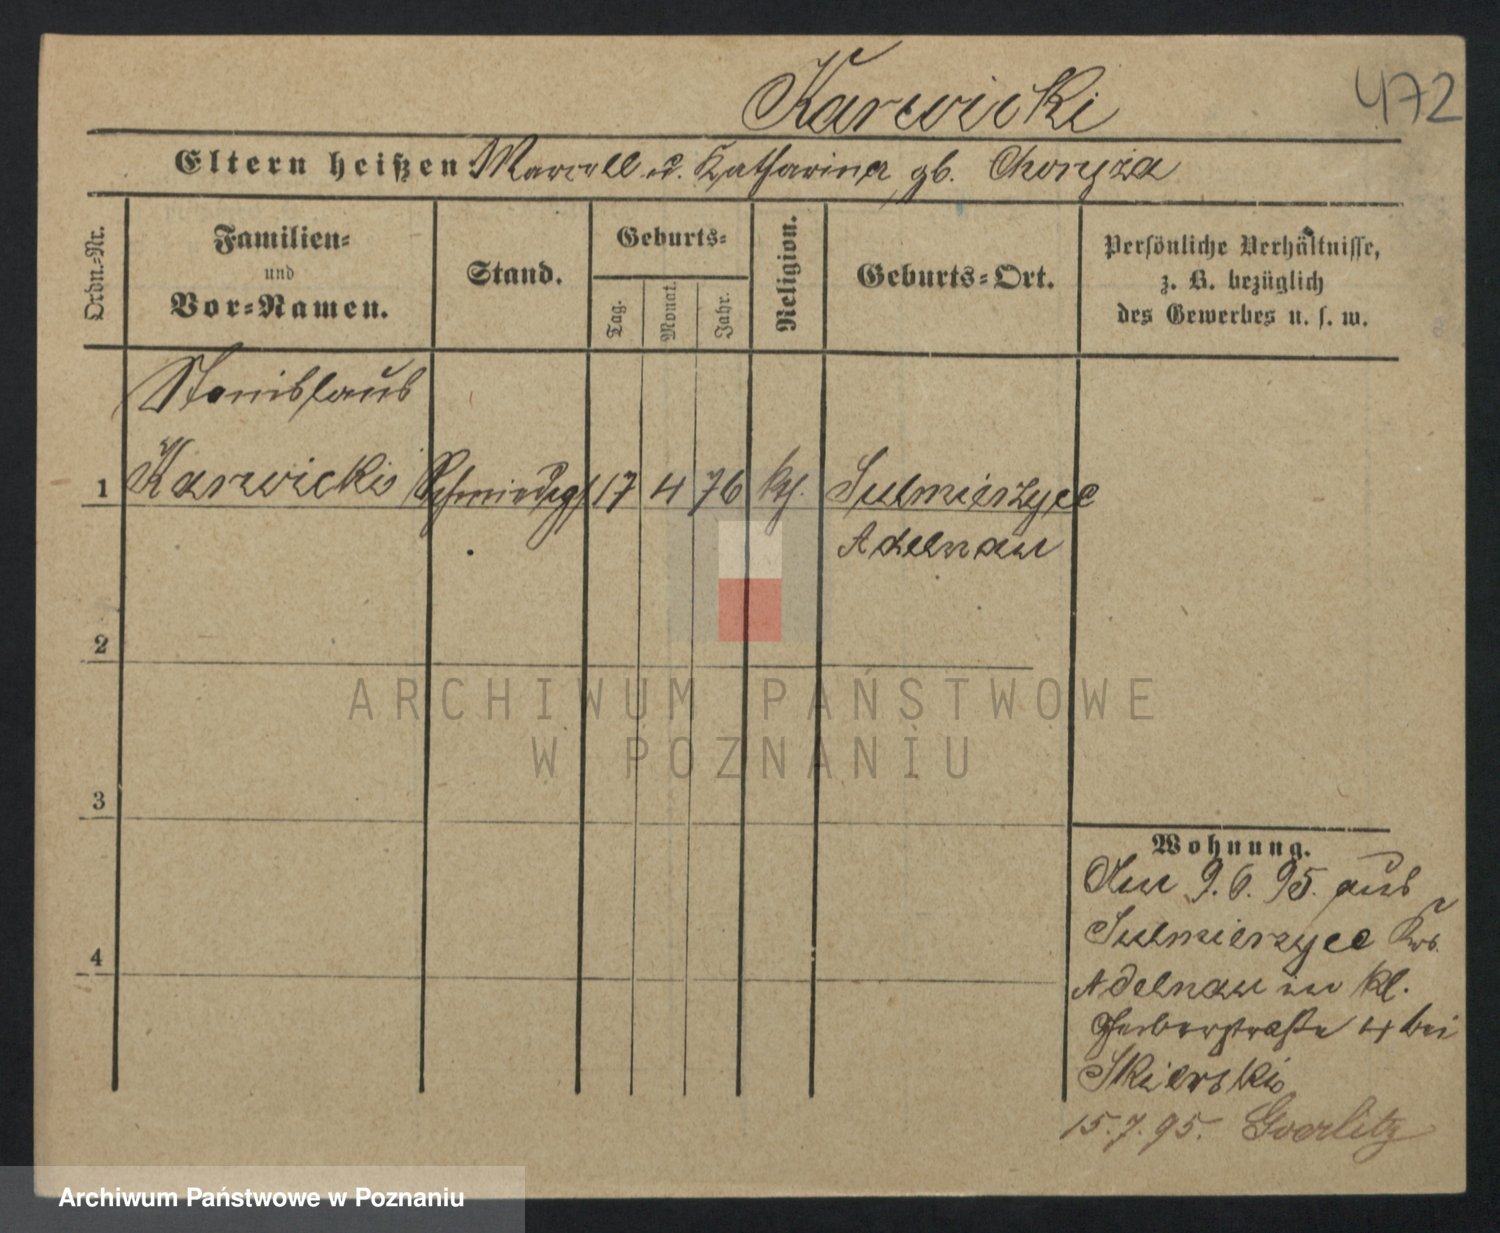 Karwicki
472
Eltern heißen: Marcell u. Katharina gb. Choryża
Ordn.=Nr.
Familien=
und
Vor=Namen.
Stand.
Geburts=
Tag.
Monat.
Jahr.
Religion.
Geburts=Ort.
Persönliche Verhältnisse,
z. B. bezüglich
des Gewerbes u. s. w.
Stanislaus
1 Karwicki Schmiedegs 17 4 76 kth. Sulmierzyce
Adelnau
2
3
4
Wohnung.
9. 6. 95. aus
Sulmierzyce Krs.
Adelnau in Kl.
Gerberstraße 4 bei
Skierski
15. 7. 95. Goerlitz
ARCHIWUM PAŃSTWOWE
W POZNANIU
Archiwum Państwowe w Poznaniu